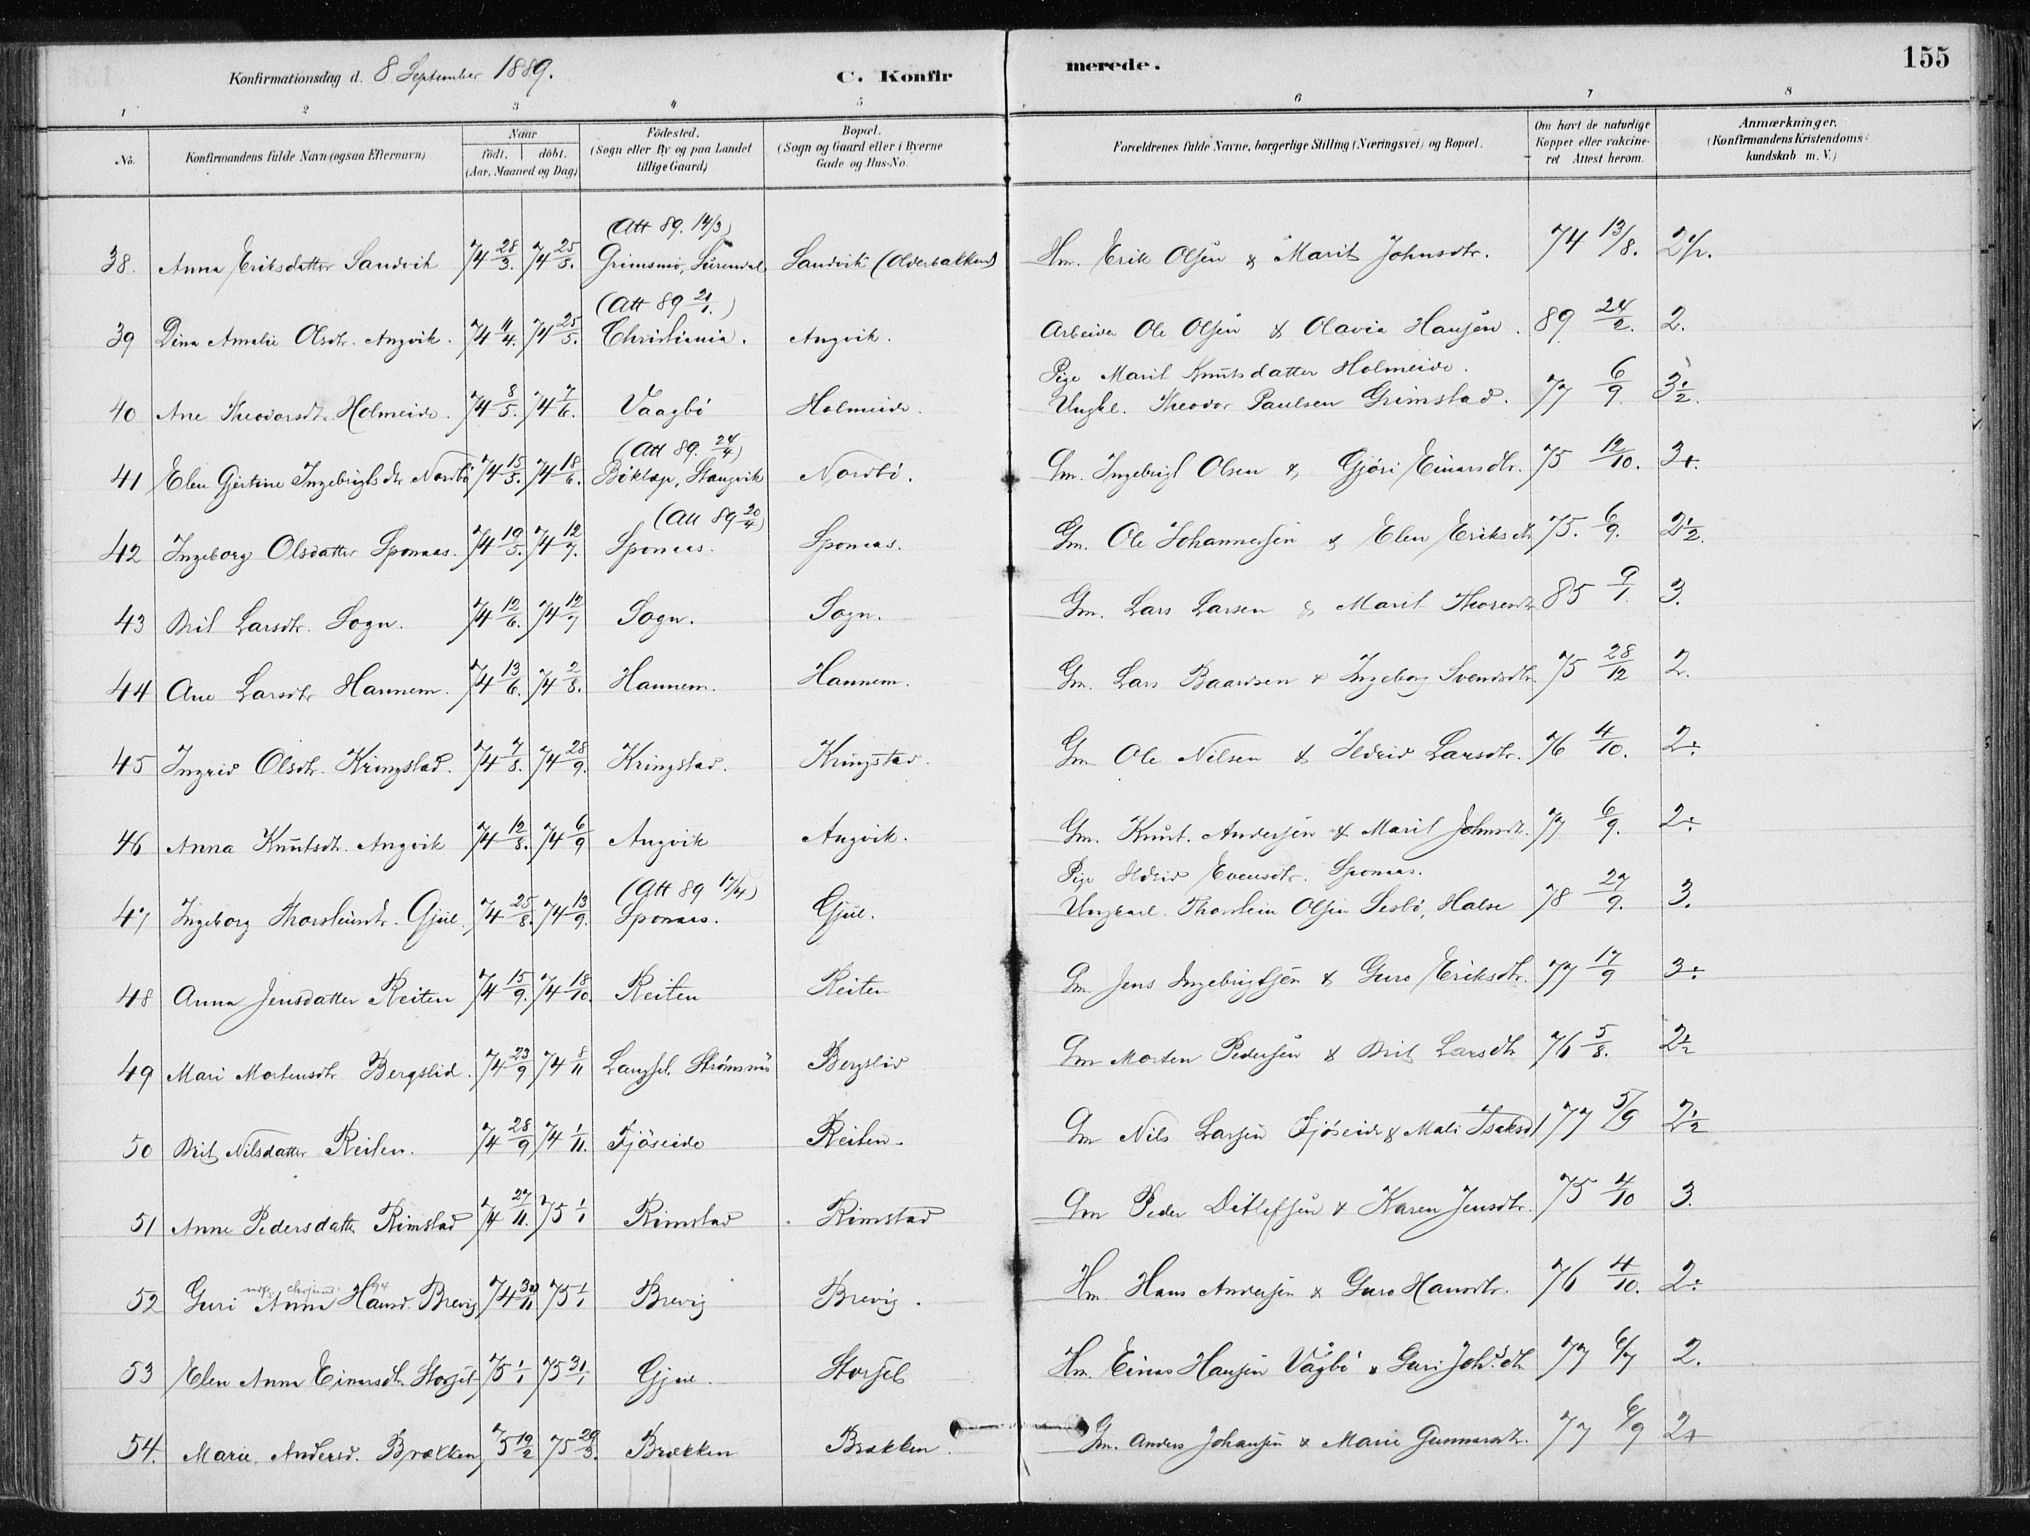 155
Konfirmationsdag d. 8 September 1889. C. Konfirmerede.
1 2 3 4 5 6 7 8
No. Konfirmandens fulde Navn (ogsaa Efternavn) Naar födt. döbt. (Aar, Maaned og Dag) Födested. (Sogn eller By og paa Landet tillige Gaard) Bopæl. (Sogn og Gaard eller i Byerne Gade og Hus-No. Forældrenes fulde Navne, borgerlige Stilling (Næringsvei) og Bopæl. Om havt de naturlige Kopper eller vakcineret Attest herom. Anmærkninger. (Konfirmandens Kristendomskundskab m. V.)
(Att 89. 14/3)
38. Anna Eriksdatter Sandvik 74 28/3. 74 25/5. Grimsmo, Surendal Sandvik (Olderbakken) Hm. Erik Olsen & Marit Johnsdtr. 74 13/8.
(Att 89 21/1.)
39 Dina Amalie Olsdtr. Angvik. 74 11/4. 74 25/5. Christiania. Angvik. Arbeider Ole Olsen & Olavia Hansen. 89 24/2. 2.
Pige Marit Knutsdatter Holmeide.
40 Ane Theodorsdt. Holmeide. 74 8/5. 74 7/6. Vaagbö Holmeide. Ungkl. Theodor Paulsen Grimstad. 77 6/9. 3 1/2.
(Att 89. 24/4)
41 Elen Gjertine Ingebrigtsdtr Nordbö 74 15/5. 74 18/6. Böklep, Stangvik Nordbö. Gm. Ingebrigt Olsen & Gjöri Einarsdtr. 75 12/10. 3+.
(Att 89 20/4)
42 Ingeborg Olsdatter Sponaas. 74 19/5. 74 12/7. Sponaas. Sponaas. Gm. Ole Johannesen & Elen Eriksdt 75. 6/9. 2 1/2.
43 Brit Larsdtr. Sogn. 74 12/6. 74 12/7 Sogn. Sogn. Gm. Lars Larsen & Marit Thoresdtr 85 9/1 3.
44 Ane Larsdtr Hannem. 74 13/6. 74 2/8. Hannem. Hannem. Gm. Lars Baardsen & Ingeborg Svendsdtr. 75 28/12 2.
45 Ingrid Olsdtr. Kringstad. 74 7/8. 74 28/9. Kringstad. Kringstad. Gm Ole Nilsen & Ildrid Larsdtr. 76 4/10. 2÷
46 Anna Knutsdtr. Angvik 74 12/8. 74 6/9 Angvik Angvik. Gm. Knut Andersen & Marit Johnsdt. 77 6/9. 2÷
(Att 89 17/4) Pige Ildrid Evensdtr. Sponaas.
47 Ingeborg Thorsteinsdt. Gjül. 74 25/8. 74 13/9. Sponaas. Gjül. Ungkarl. Thorstein Olsen Halse 78 27/9. 3.
48 Anna Jensdatter Reiten 74 15/9. 74 18/10. Reiten Reiten Gm. Jens Ingebrigtsen & Guro Eriksdtr. 77 17/9 3÷
49 Mari Mortensdtr Bergslid. 74 23/9 74 8/11 Langset. Bergslid Gm Morten Pedersen & Brit Larsdtr 76 5/8. 2 1/2
50 Brit Nilsdatter Reiten. 74 28/9 74 1/11. Fjöseide Reiten. Gm Nils Larsen Fjöseide & Mali Isaksd 77 5/9 2 1/2
51 Anne Pedersdatt. Rimstad 74 27/11. 75 1/1 Rimstad Rimstad Gm Peder Ditlefsen & Karen Jensdtr. 75 4/10 3.
52 Guri Anna Hansd. Brevig 74 30/11 75 1/1 Brevig Brevig. Hm. Hans Andersen & Guro Hansdtr. 76 4/10. 2÷
53 Elen Anna Einarsdt. Storset 75 1/1 75 31/1 Gjül. Storset Hm. Einar Hansen Vågbö & Guri Johs.dtr 77 6/7 2.
54. Marie Andersd. Brækken 75 19/2 75 29/3. Brækken Brækken. Gm. Anders Johansen & Marie Gunnarsdt. 77 6/9 2+